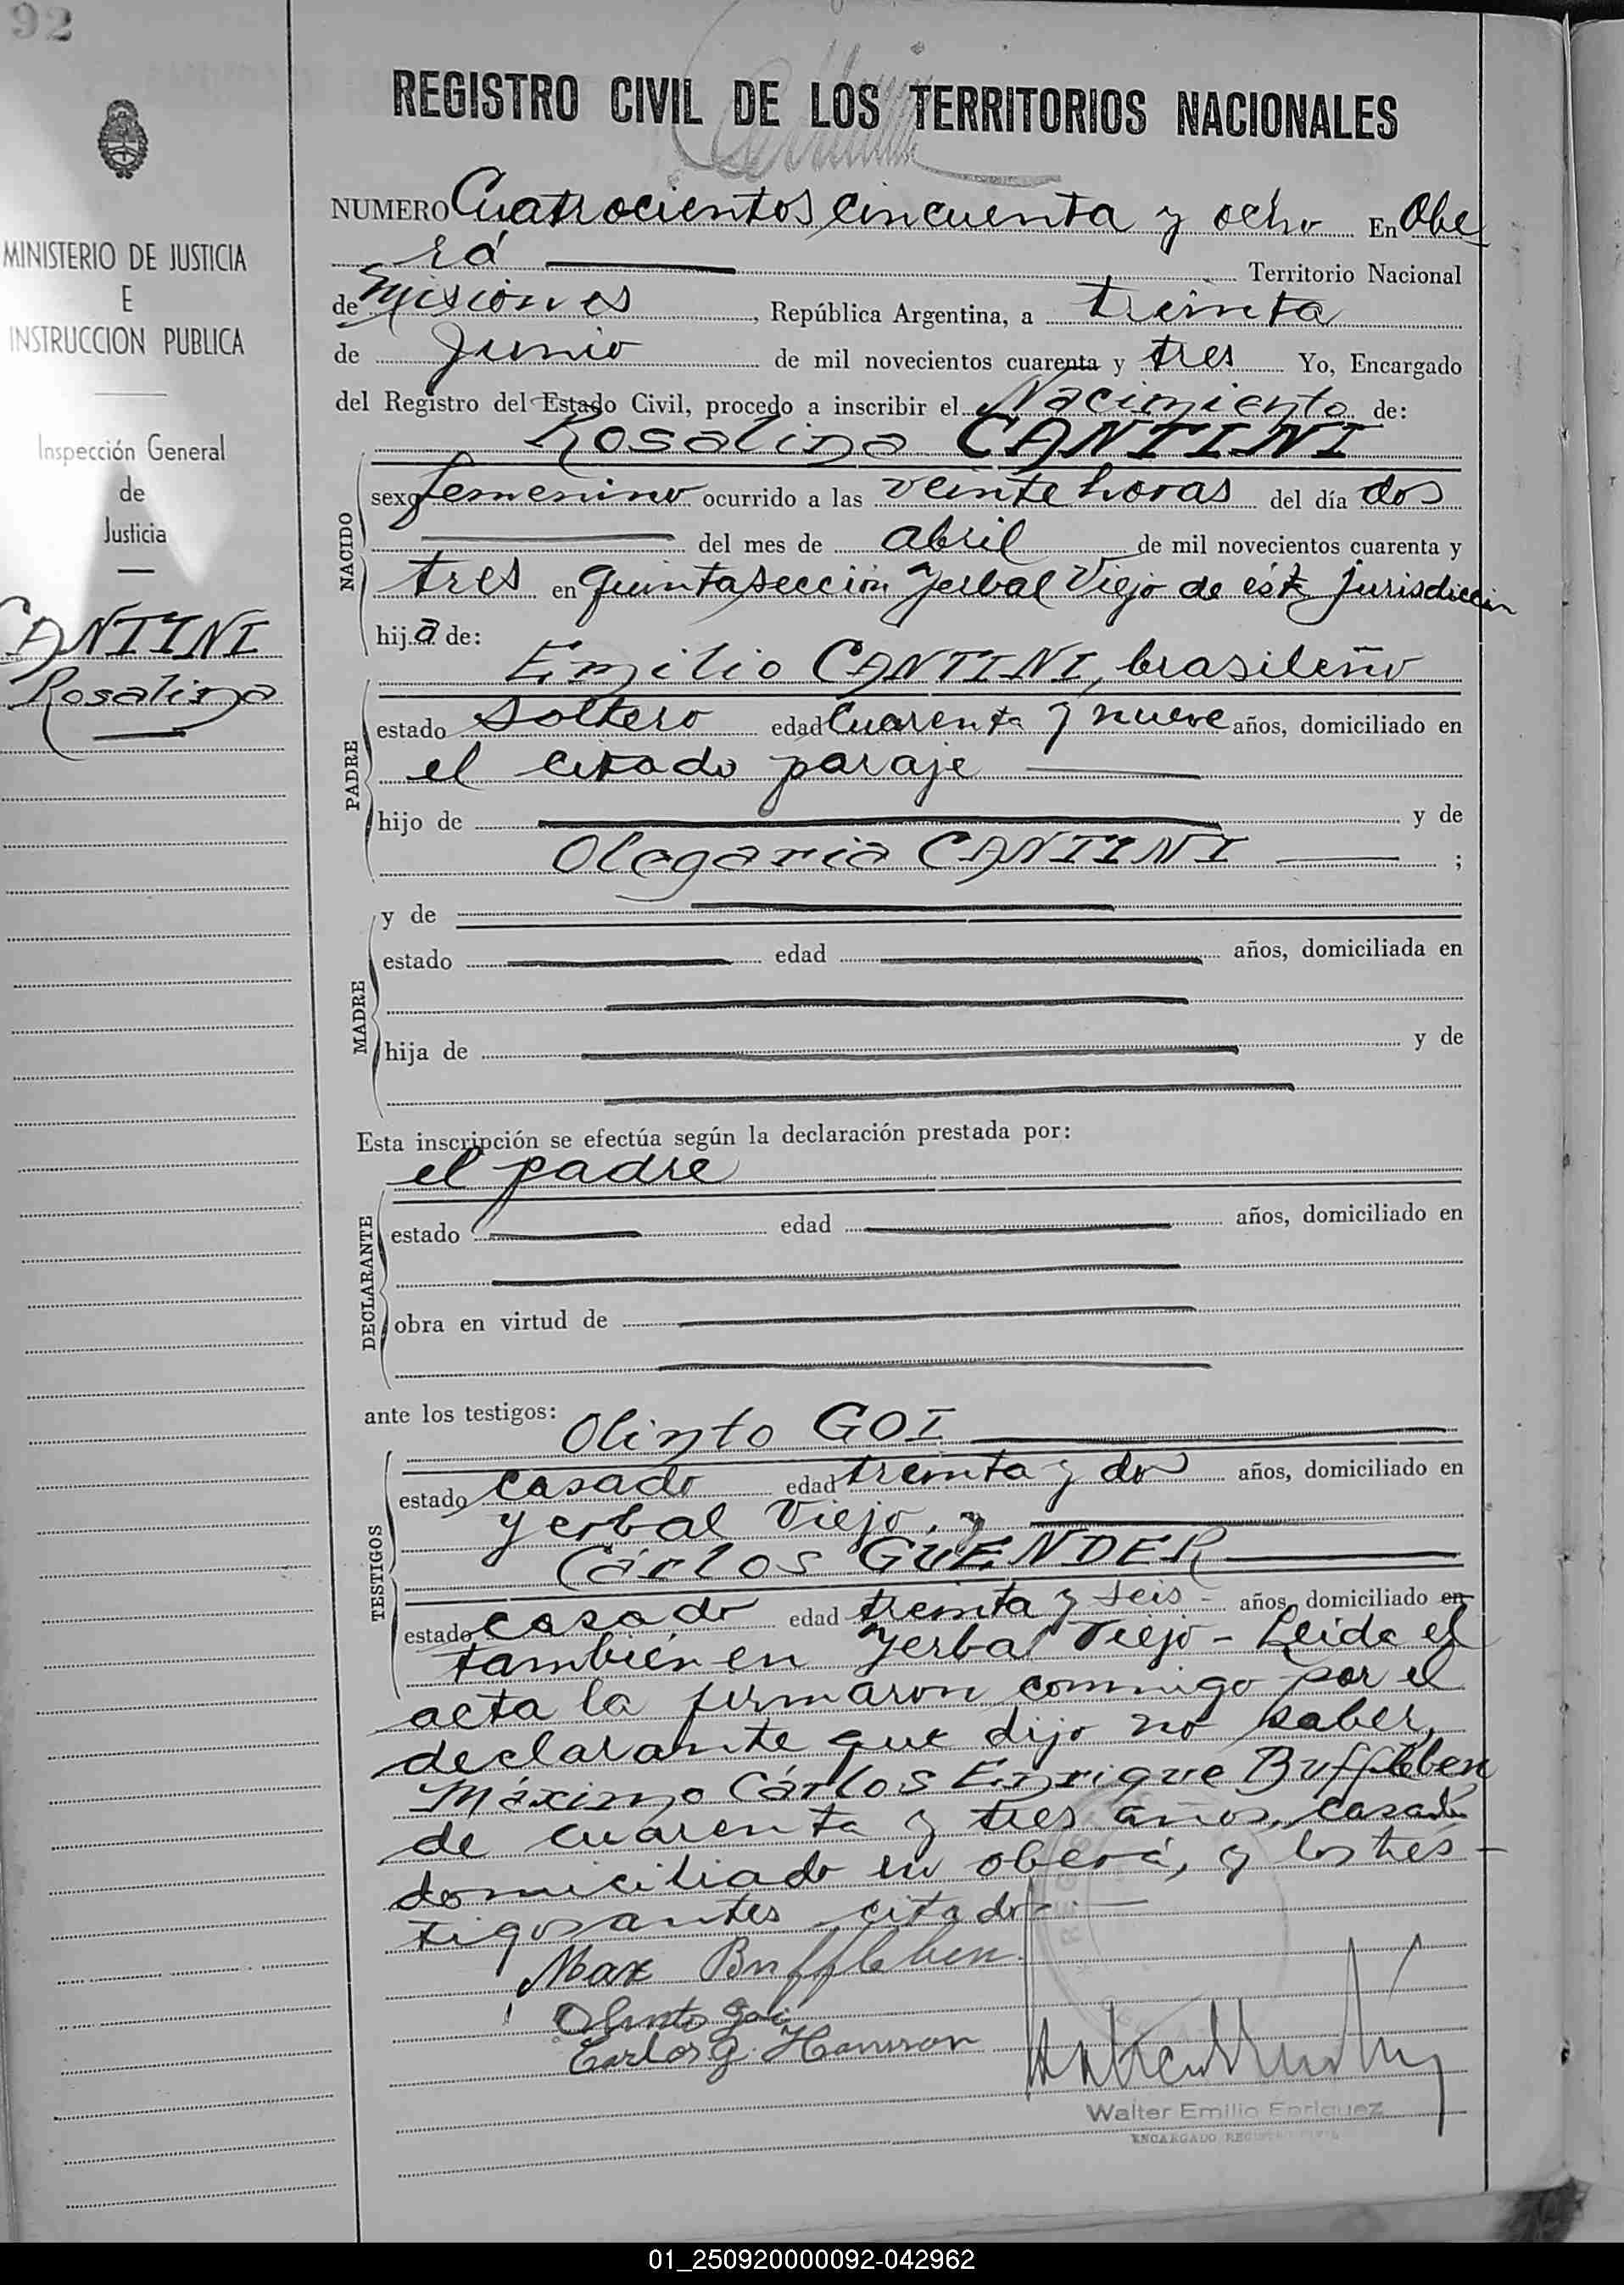 92
MINISTERIO DE JUSTICIA
E
INSTRUCCION PUBLICA
Inspección General
de
Justicia
CANTINI
Rosalina
REGISTRO CIVIL DE LOS TERRITORIOS NACIONALES
NUMERO Cuatrocientos cincuenta y ocho En Obe
rá Territorio Nacional
de Misiones, República Argentina, a treinta
de Junio de mil novecientos cuarenta y tres Yo, Encargado
del Registro del Estado Civil, procedo a inscribir el Nacimiento de:
Rosalina CANTINI
NACIDO
sexo femenino ocurrido a las veinte horas del día dos
del mes de abril de mil novecientos cuarenta y
tres en quinta sección Yerbal Viejo de ésta jurisdicción
hija de:
Emilio CANTINI, brasileño
PADRE
estado soltero edad cuarenta y nueve años, domiciliado en
el citado paraje
hijo de y de
Olegaria CANTINI ;
MADRE
y de
estado edad años, domiciliada en
hija de y de
Esta inscripción se efectúa según la declaración prestada por:
el padre
DECLARANTE
estado edad años, domiciliado en
obra en virtud de
ante los testigos:
Olinto GOI
TESTIGOS
estado casado edad treinta y dos años, domiciliado en
yerbal Viejo, y
Cárlos GUENDER
estado casado edad treinta y seis - años, domiciliado en
también en Yerbal Viejo - Leida el
acta la firmaron conmigo por el
declarante que dijo no saber,
Máximo Cárlos Enrique Buffleben
de cuarenta y tres años, casado
domiciliado en oberá, y los tes-
tigos antes citados
Max Buffleben
Olinto Goi
Carlos G. Hansson
Walter Emilio Enriquez
ENCARGADO REGISTRO CIVIL
01_250920000092-042962